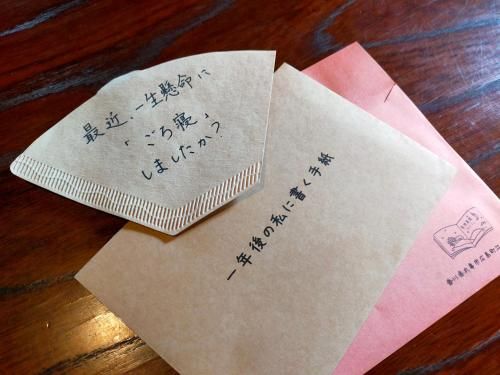 最近、一生懸命に
「ごろ寝」
しましたか?
一年後の私に書く手紙